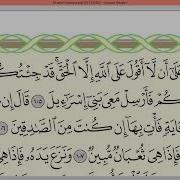 عَلَىٰٓ أَن لَّآ أَقُولَ عَلَى ٱللَّهِ إِلَّا ٱلْحَقَّ قَدْ جِئْتُكُ
كُمْ فَأَرْسِلْ مَعِىَ بَنِىٓ إِسْرَٰٓءِيلَ ١٠٥ قَالَ إِن
ـَٔايَةٍ فَأْتِ بِهَآ إِن كُنتَ مِنَ ٱلصَّٰدِقِينَ ١٠٦
فَإِذَا هِىَ ثُعْبَانٌ مُّبِينٌ ١٠٧ وَنَزَعَ يَدَهُۥ فَإِذَا هِىَ